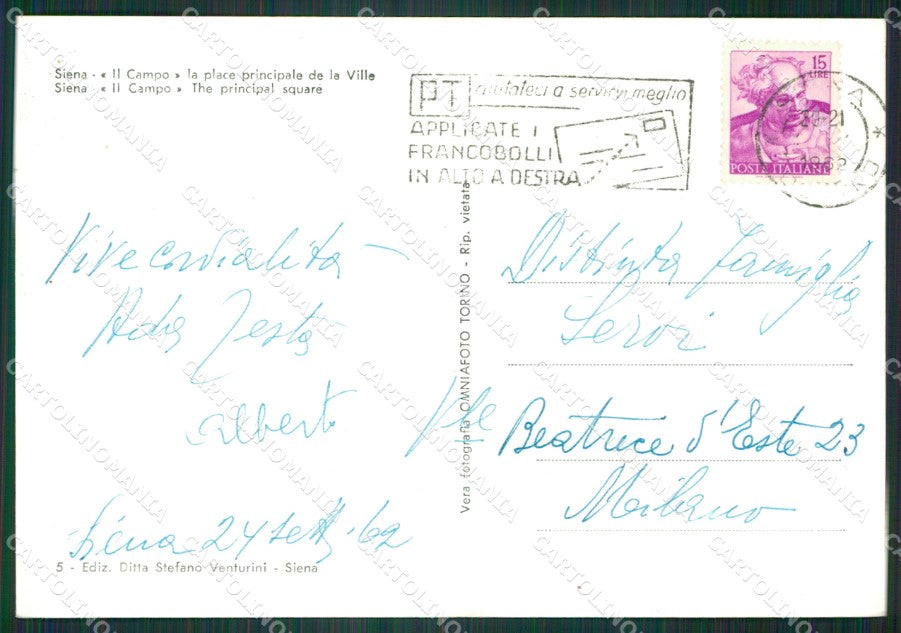 Siena - « Il Campo » la place principale de la Ville
Siena - « Il Campo » The principal square
PT aiutateci a servirvi meglio
APPLICATE I
FRANCOBOLLI
IN ALTO A DESTRA
15
LIRE
POSTE ITALIANE
21
1962
Vive cordialità
Ada Testa
Alberto
Siena 24 sett. 62
5 - Ediz. Ditta Stefano Venturini - Siena
Vera fotografia OMNIAFOTO TORINO - Rip. vietata
Distinta Famiglia
Servi
V.le Beatrice d'Este 23
Milano
CARTOLINOMANIA